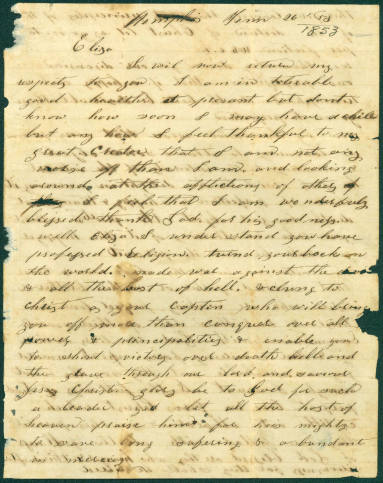 Memphis Tenn
1853
Eliza
I will now return my
respects to you I am in tolerable
good health at present but dont
know how soon I may have a chill
but any how I feel thankful to my
great Creator that I am not any
worse off than I am, and looking
around at the afflictions of others
I feel that I am wonderfuly
blessed thank God for his goodness
well Eliza I under stand you have
professed religion turnd your back on
the world made war against the
& all the host of hell, & clung to
Christ a good Captin who will bring
you off more than conquer over all
powers & principalities & enable you
to shout victory over death hell and
the grave through our lord and savour
Jesus Christ glory be to God for such
a leader and let all the host of
heaven praise him for his mighty
to save long sufering & a bundant
in mercy